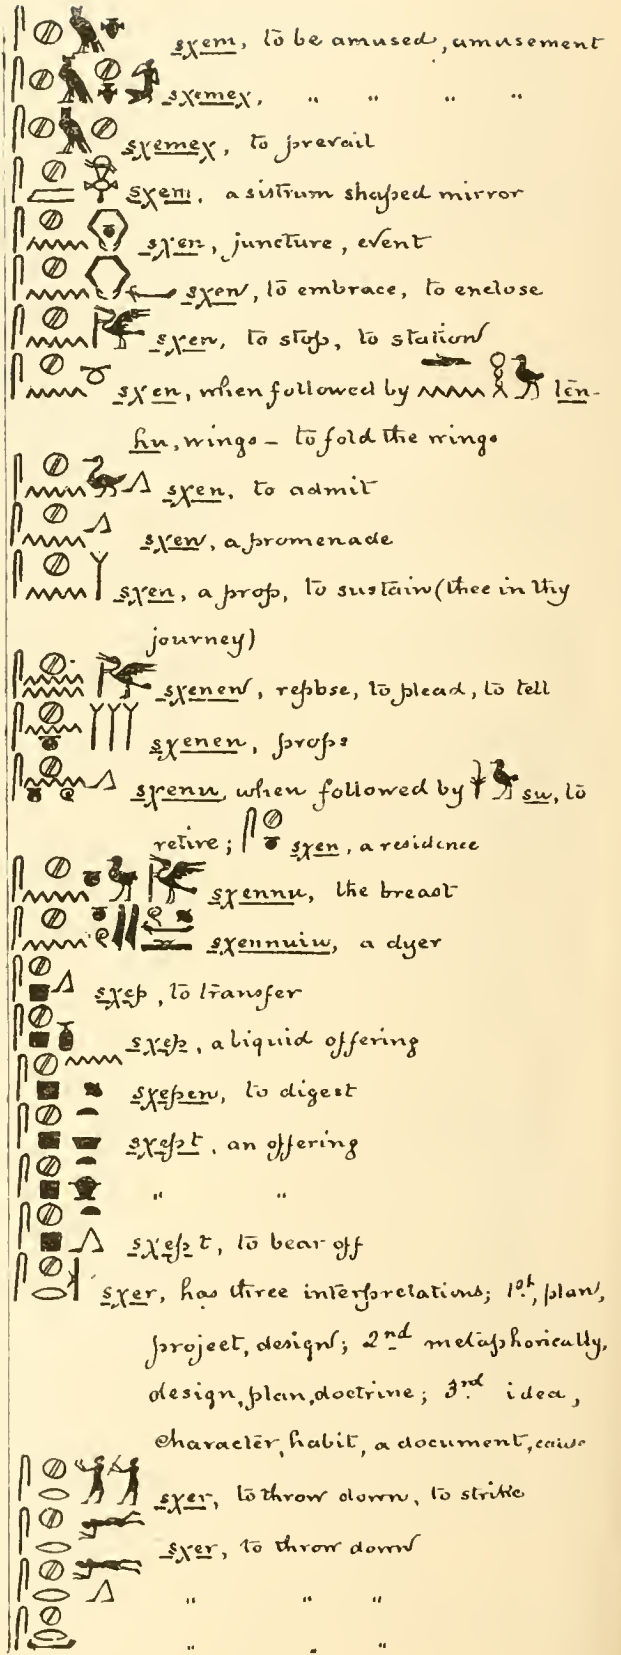 sχem, to be amused, amusement
sχemeχ, " " " "
sχemeχ, to prevail
sχem, a sistrum shaped mirror
sχen, juncture, event
sχen, to embrace, to enclose
sχen, to stop, to station
sχen, when followed by ten-
hu, wings – to fold the wings
sχen, to admit
sχen, a promenade
sχen, a prop, to sustain (thee in thy
journey)
sχenen, repose, to plead, to tell
sχenen, props
sχenu, when followed by su, to
retire; sχen, a residence
sχennu, the breast
sχennuiu, a dyer
sχep, to transfer
sχep, a liquid offering
sχepen, to digest
sχept, an offering
" "
sχept, to bear off
sχer, has three interpretations; 1st, plan,
project, design; 2nd metaphorically,
design, plan, doctrine; 3rd idea,
character, habit, a document, cause
sχer, to throw down, to strike
sχer, to throw down
" " "
" " "